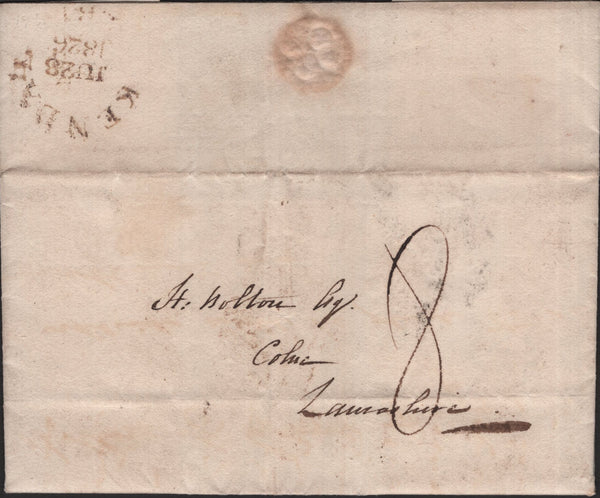 KENDAL
JU28
1826
H. Bolton Esq.
Colne
Lancashire
8